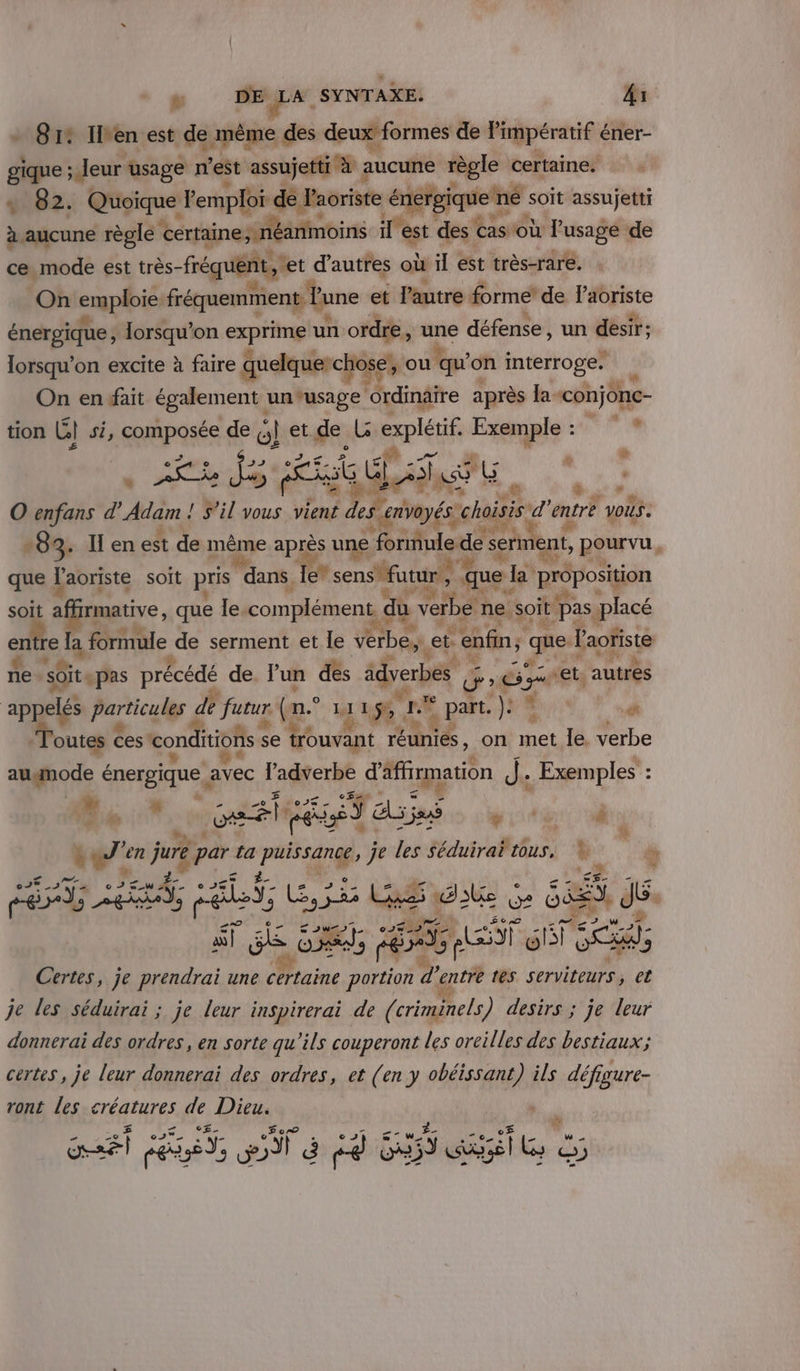 DE LA SYNTAXE. 41
81. Il en est de même des deux formes de l'impératif éner-
gique ; leur usage n'est assujetti à aucune règle certaine.
82. Quoique l'emploi de l'aoriste énergique ne soit assujetti
à aucune règle certaine, néanmoins il est des cas où l'usage de
ce mode est très-fréquent, et d'autres où il est très-rare.
On emploie fréquemment l'une et l'autre forme de l'aoriste
énergique, lorsqu'on exprime un ordre, une défense, un desir;
lorsqu'on excite à faire quelque chose, ou qu'on interroge.
On en fait également un usage ordinaire après la conjonc-
tion إِمَّا si, composée de إِنْ et de مَا explétif. Exemple :
يَا بَنِي آدَمَ إِمَّا يَأْتِيَنَّكُمْ رُسُلٌ مِنْكُمْ
O enfans d'Adam ! s'il vous vient des envoyés choisis d'entre vous.
83. Il en est de même après une formule de serment, pourvu
que l'aoriste soit pris dans le sens futur, que la proposition
soit affirmative, que le complément du verbe ne soit pas placé
entre la formule de serment et le verbe, et enfin, que l'aoriste
ne soit pas précédé de l'un des adverbes سَ, سَوْفَ et autres
appelés particules de futur (n.° 1115, 1.re part.).
Toutes ces conditions se trouvant réunies, on met le verbe
au mode énergique avec l'adverbe d'affirmation لَ. Exemples :
فَبِعِزَّتِكَ لَأُغْوِيَنَّهُمْ أَجْمَعِينَ
J'en jure par ta puissance, je les séduirai tous.
قَالَ لَأَتَّخِذَنَّ مِنْ عِبَادِكَ نَصِيبًا مَفْرُوضًا وَلَأُضِلَّنَّهُمْ وَلَأُمَنِّيَنَّهُمْ وَلَآمُرَنَّهُمْ
فَلَيُبَتِّكُنَّ آذَانَ الْأَنْعَامِ وَلَآمُرَنَّهُمْ فَلَيُغَيِّرُنَّ خَلْقَ اللهِ
Certes, je prendrai une certaine portion d'entre tes serviteurs, et
je les séduirai ; je leur inspirerai de (criminels) desirs ; je leur
donnerai des ordres, en sorte qu'ils couperont les oreilles des bestiaux;
certes, je leur donnerai des ordres, et (en y obéissant) ils défigure-
ront les créatures de Dieu.
رَبِّ بِمَا أَغْوَيْتَنِي لَأُزَيِّنَنَّ لَهُمْ فِي الْأَرْضِ وَلَأُغْوِيَنَّهُمْ أَجْمَعِينَ